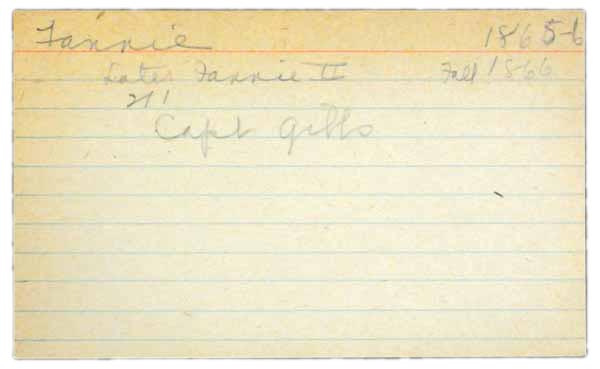 Fannie 1865-6
Later Fannie II Fall 1866
211
Capt Gibbs